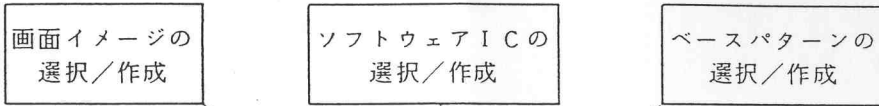 画面イメージの
選択／作成
ソフトウェアＩＣの
選択／作成
ベースパターンの
選択／作成